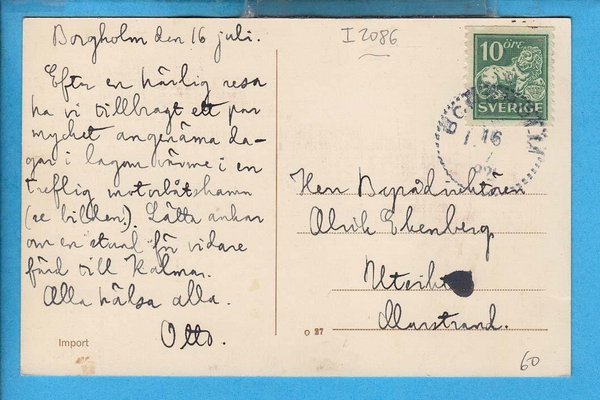 Borgholm den 16 juli.
Efter en härlig resa
ha vi tillbragt ett par
mycket angenäma da-
gar i lagom värme i en
treflig motorbåtshamn
(se bilden). Lätta ankar
om en stund för vidare
färd till Kalmar.
Alla hälsa alla.
Otto.
Import
I 2086
10 ÖRE
SVERIGE
16
Herr Byrådirektören
Alrik Ekenberg
Marstrand.
O 27
60